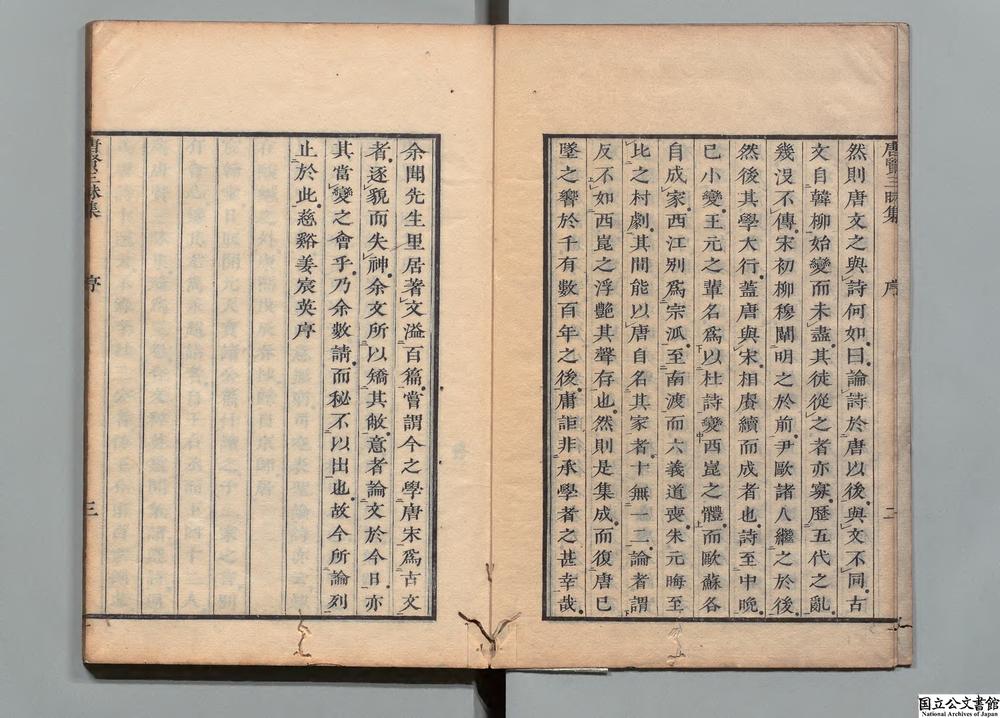 唐賢三昧集 序 二
然則唐文之與詩何如曰論詩於唐以後與文不同古
文自韓柳始變而未盡其徒從之者亦寡歷五代之亂
幾沒不傳宋初柳穆闡明之於前尹歐諸人繼之於後
然後其學大行蓋唐與宋相賡續而成者也詩至中晚
已小變王元之輩名爲以杜詩變西崑之體而歐蘇各
自成家西江别爲宗派至南渡而六義道喪朱元晦至
比之村劇其間能以唐自名其家者十無一二論者謂
反不如西崑之浮艷其聲存也然則是集成而復唐已
墜之響於千有數百年之後庸詎非承學者之甚幸哉
余聞先生里居著文溢百篇嘗謂今之學唐宋爲古文
者逐貌而失神余文所以矯其敝意者論文於今日亦
其當變之會乎乃余數請而秘不以出也故今所論列
止於此慈谿姜宸英序
唐賢三昧集 序 三
国立公文書館
National Archives of Japan